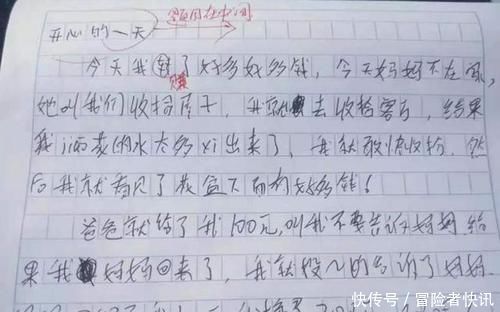 题目在中间
开心的一天
今天我钱了好多好多钱，今天妈妈不在家，
赚
她叫我们收拾房子，我就去收拾客厅，结果
我jiao花的水太多xi出来了，我就敢快收拾，然
后我就看见了花盆下面有好多钱！
爸爸就给了我100元，叫我不要告诉妈妈 结
果我妈妈回来了，我就
的告诉了妈妈
快传号／冒险者快讯